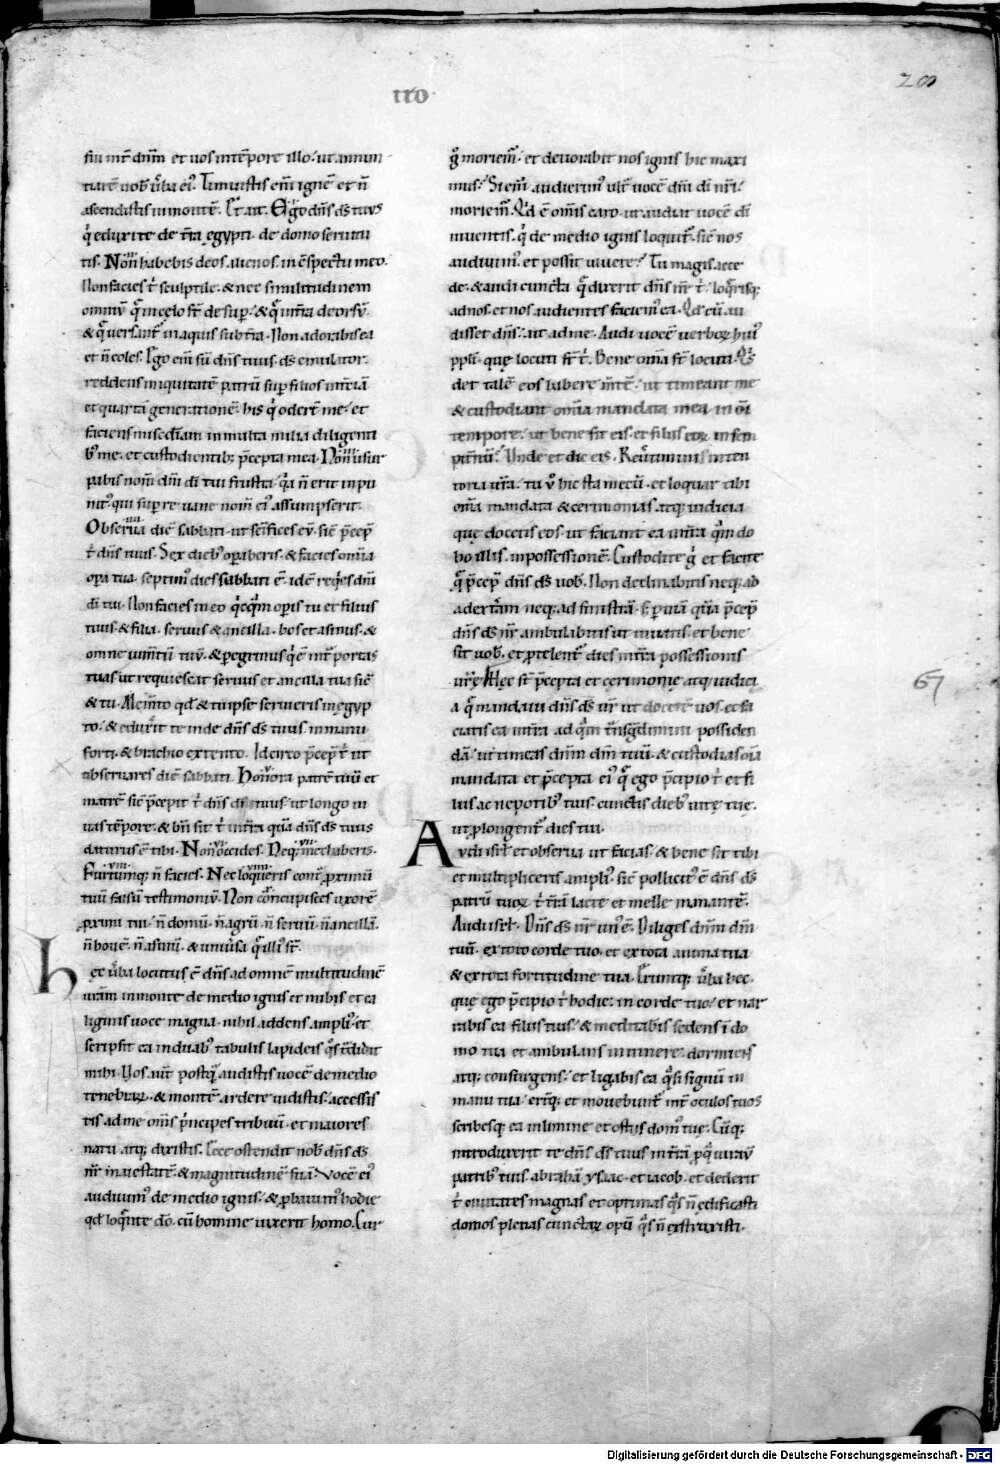 tro
200
fui int̄ dn̄m et uos in tēpore illo. ut annun
tiarē uob̄ ūba eiꝰ. Timuistis eni̅ ignē et n̄
ascendistis in montē. Et ait. Ego dn̄s d̄s tuus
q̇ eduxi te de tr̄a ęgypti. de domo seruitu
tis. Non habebis deos alienos. in c̄spectu meo.
Non facies t̄ sculptile. & nec similitudinem
omniū q̄ in cęlo st̄ desup̄. & q̄ in tr̄a deorsū.
& q̄ uersant̄ in aquis sub tr̄a. Non adorabis ea
et n̄ coles. Ego eni̅ sū dn̄s tuus. d̄s emulator.
reddens iniquitatē patrū sup̄ filios in t̄ciā
et quartā generationē. his q̇ oder̄t me. et
faciens mis̄cdiam in multa milia diligenti
bꝰ me. et custodientibꝫ p̄cepta mea. Non usur
pabis nom̄ dn̄i dī tui frustra. q̇a n̄ erit inpu
nitꝰ. qui sup̄ re uane nom̄ eiꝰ assumpserit.
Obserua diē sabbati. ut sc̄ifices eū. sic̄ p̄cep̄
t̄ dn̄s tuus. Sex diebꝰ op̄aberis. & facies om̄ia
opa tua. septimꝰ dies sabbati ē. idē req̇es dn̄i
dī tui. Non facies in eo q̇cq̄m op̄is tu et filius
tuus. & filia. seruus & ancilla. bos et asinus. &
omne iumtū tuū. & p̱egrinus q̇ ē int̄ portas
tuas ut requiescat seruus et ancilla tua sic̄
& tu. Mem̄to qd̄ & tu ipse serueris in ęgyp
to. & eduxīt te inde dn̄s d̄s tuus in manu
forti. & brachio extento. Idcirco p̄cep̄ t̄ ut
obseruares diē sabbati. Honora patrē tuū et
matrē sic̄ p̄cepit t̄ dn̄s d̄s tuus. ut longo ui
uas tēpore. & bn̄ sit t̄ in tr̄a quā dn̄s d̄s tuus
daturus ē tibi. Non occides. Neqꝫ mechaberis.
Furtumqꝫ n̄ facies. Nec loq̄ueris cont̄ ꝓximū
tuū falsū testimoniū. Non c̄cupisces uxorē
ꝓximi tui. n̄ domū. n̄ agrū. n̄ seruū. n̄ ancillā.
n̄ bouē. n̄ asinū. & uniūsa q̄ illiꝰ st̄.
Hęc ūba locutus ē dn̄s ad omnē multitudinē
ur̄am in monte de medio ignis et nubis et ca
liginis uoce magna. nihil addens ampliꝰ. et
scripsit ea in duabꝰ tabulis lapideis q̇s t̄didit
mihi. Uos aut̄ postq̄ audistis uocē de medio
tenebraꝝ. & montē ardere uidistis. accessis
tis ad me om̄s p̄ncipes tribuū. et maiores
natu atqꝫ dixistis. Ecce ostendit nob̄ dn̄s d̄s
nr̄ maiestatē. & magnitudinē suā. Uocē eiꝰ
audiuimꝰ de medio ignis. & ꝓbauimꝰ hodie
qd̄ loq̄nte dō. cū homine uixerit homo. Cur
g̊ moriem̄. et deuorabit nos ignis hic maxi
mus. Si eni̅ audierimꝰ ult̄ uocē dn̄i dī nr̄i.
moriem̄. Qd̄ ē om̄is caro. ut audiat uocē dī
uiuentis. q̇ de medio ignis loquit̄. sic̄ nos
audiuimꝰ. et possit uiuere. Tu magis acce
de. & audi cuncta q̄ dixerit dn̄s nr̄ t̄. loq̄risqꝫ
ad nos. et nos audientes faciemꝰ ea. Qd̄ cū au
disset dn̄s. ait ad me. Audi uocē uerboꝝ huiꝰ
pp̄li. quę locuti st̄ t̄. Bene om̄ia st̄ locuti. Q̇s
det talē eos habere mētē. ut timeant me
& custodiant om̄ia mandata mea in om̄i
tempore. ut bene sit eis. et filiis eoꝝ in sem
pitnū. Uade et dic eis. Reūtimini in ten
toria ur̄a. tu ū hic sta mecū. et loquar tibi
om̄ia mandata & cerimonias. atqꝫ iudicia
quę docebis eos. ut faciant ea in tr̄a q̄m da
bo illis. in possessionē. Custodite g̊ et facite
q̄ p̄cep̄ dn̄s d̄s uob̄. Non declinabitis neqꝫ ad
adextam neqꝫ ad sinistrā. s; p̱ uiā quā p̄cep̄
dn̄s d̄s nr̄ ambulabitis ut uiuatis. et bene
sit uob̄. et ꝓtelent̄ dies in tr̄a possessionis
ur̄ę. Hęc st̄ p̄cepta et cerimonię atqꝫ iudici
a q̄ mandauit dn̄s d̄s ur̄ ut docerē uos et fa
ciatis ea in tr̄a ad q̄m t̄nsgdimini possiden
dā. ut timeas dn̄m dm̄ tuū. & custodias om̄ia
mandata et p̄cepta eiꝰ q̄ ego p̄cipio t̄ et fi
liis ac nepotibꝰ tuis. cunctis diebꝰ uitę tuę.
ut ꝓlongent̄ dies tui.
Audi isrl̄ et obserua ut facias. & bene sit tibi
et multipliceris ampliꝰ. sic̄ pollicitꝰ ē dn̄s d̄s
patrū tuoꝝ t̄ tr̄ā lacte et melle manantē.
Audi isrl̄. Dn̄s d̄s nr̄ unꝰ ē. Diliges dn̄m dm̄
tuū. ex toto corde tuo. et ex tota anima tua
& ex tota fortitudine tua. Eruntqꝫ ūba hec.
quę ego p̄cipio t̄ hodie. in corde tuo. et nar
rabis ea filiis tuis. & meditabis sedens in do
mo tua et ambulans in itinere. dormiens
atqꝫ consurgens. et ligabis ea q̇si signū in
manu tua. erūtqꝫ et mouebunt̄ int̄ oculos tuos
scribesqꝫ ea in limine et ostiis domꝰ tuę. Cūqꝫ
introduxerit te dn̄s d̄s tuus in tr̄ā ꝓ q̇ iurauit
patribꝰ tuis. abrahā ysaac. et iacob. et dederit
t̄ ciuitates magnas et optimas q̇s n̄ ędificasti
domos plenas cunctaꝝ opū q̇s n̄ exstruxisti.
67
Digitalisierung gefördert durch die Deutsche Forschungsgemeinschaft - DFG